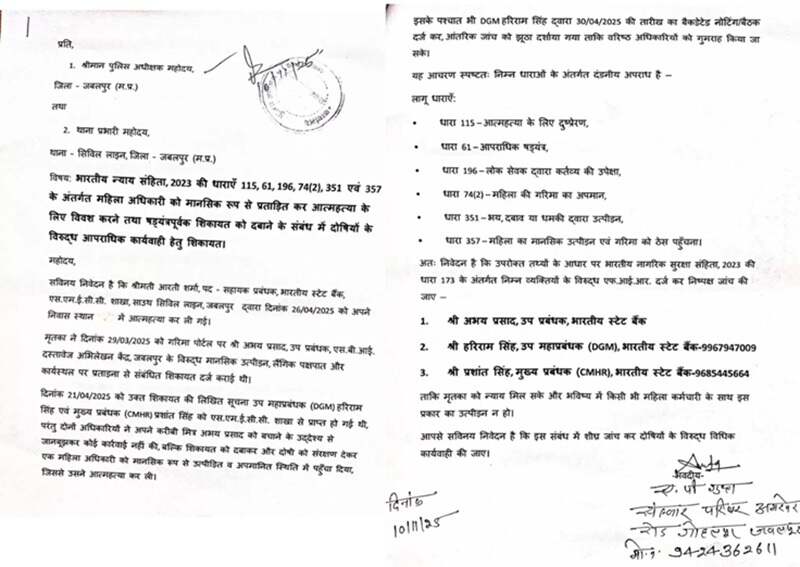 प्रति,
1. श्रीमान पुलिस अधीक्षक महोदय,
जिला - जबलपुर (म.प्र.)
तथा
2. थाना प्रभारी महोदय,
थाना - सिविल लाइन, जिला - जबलपुर (म.प्र.)
विषय: भारतीय न्याय संहिता, 2023 की धाराएँ 115, 61, 196, 74(2), 351 एवं 357
के अंतर्गत महिला अधिकारी को मानसिक रूप से प्रताड़ित कर आत्महत्या के
लिए विवश करने तथा षड्यंत्रपूर्वक शिकायत को दबाने के संबंध में दोषियों के
विरुद्ध आपराधिक कार्यवाही हेतु शिकायत।
महोदय,
सविनय निवेदन है कि श्रीमती आरती शर्मा, पद - सहायक प्रबंधक, भारतीय स्टेट बैंक,
एस.एम.ई.सी.सी. शाखा, साउथ सिविल लाइन, जबलपुर द्वारा दिनांक 26/04/2025 को अपने
निवास स्थान में आत्महत्या कर ली गई।
मृतका ने दिनांक 29/03/2025 को गरिमा पोर्टल पर श्री अभय प्रसाद, उप प्रबंधक, एस.बी.आई.
दस्तावेज अभिलेखन केंद्र, जबलपुर के विरुद्ध मानसिक उत्पीड़न, लैंगिक पक्षपात और
कार्यस्थल पर प्रताड़ना से संबंधित शिकायत दर्ज कराई थी।
दिनांक 21/04/2025 को उक्त शिकायत की लिखित सूचना उप महाप्रबंधक (DGM) हरिराम
सिंह एवं मुख्य प्रबंधक (CMHR) प्रशांत सिंह को एस.एम.ई.सी.सी. शाखा से प्राप्त हो गई थी,
परंतु दोनों अधिकारियों ने अपने करीबी मित्र अभय प्रसाद को बचाने के उद्देश्य से
जानबूझकर कोई कार्रवाई नहीं की, बल्कि शिकायत को दबाकर और दोषी को संरक्षण देकर
एक महिला अधिकारी को मानसिक रूप से उत्पीड़ित व अपमानित स्थिति में पहुँचा दिया,
जिससे उसने आत्महत्या कर ली।
इसके पश्चात भी DGM हरिराम सिंह द्वारा 30/04/2025 की तारीख का बैकडेटेड नोटिंग/बैठक
दर्ज कर, आंतरिक जांच को झूठा दर्शाया गया ताकि वरिष्ठ अधिकारियों को गुमराह किया जा
सके।
यह आचरण स्पष्टतः निम्न धाराओं के अंतर्गत दंडनीय अपराध है –
लागू धाराएँ:
• धारा 115 – आत्महत्या के लिए दुष्प्रेरण,
• धारा 61 – आपराधिक षड्यंत्र,
• धारा 196 – लोक सेवक द्वारा कर्तव्य की उपेक्षा,
• धारा 74(2) – महिला की गरिमा का अपमान,
• धारा 351 – भय, दबाव या धमकी द्वारा उत्पीड़न,
• धारा 357 – महिला का मानसिक उत्पीड़न एवं गरिमा को ठेस पहुँचना।
अतः निवेदन है कि उपरोक्त तथ्यों के आधार पर भारतीय नागरिक सुरक्षा संहिता, 2023 की
धारा 173 के अंतर्गत निम्न व्यक्तियों के विरुद्ध एफ.आई.आर. दर्ज कर निष्पक्ष जांच की
जाए –
1. श्री अभय प्रसाद, उप प्रबंधक, भारतीय स्टेट बैंक
2. श्री हरिराम सिंह, उप महाप्रबंधक (DGM), भारतीय स्टेट बैंक-9967947009
3. श्री प्रशांत सिंह, मुख्य प्रबंधक (CMHR), भारतीय स्टेट बैंक-9685445664
ताकि मृतका को न्याय मिल सके और भविष्य में किसी भी महिला कर्मचारी के साथ इस
प्रकार का उत्पीड़न न हो।
आपसे सविनय निवेदन है कि इस संबंध में शीघ्र जांच कर दोषियों के विरुद्ध विधिक
कार्यवाही की जाए।
भवदीय-
दिनांक
10/11/25
गुप्ता
परिसर
रोड गोहलपुर जबलपुर
मो.नं. 94-24-362611